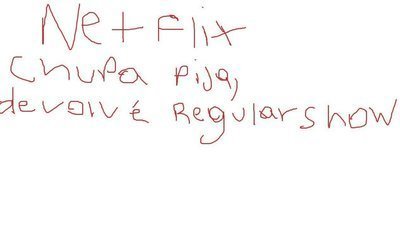 Netflix
chupa pija,
devolvé Regular show